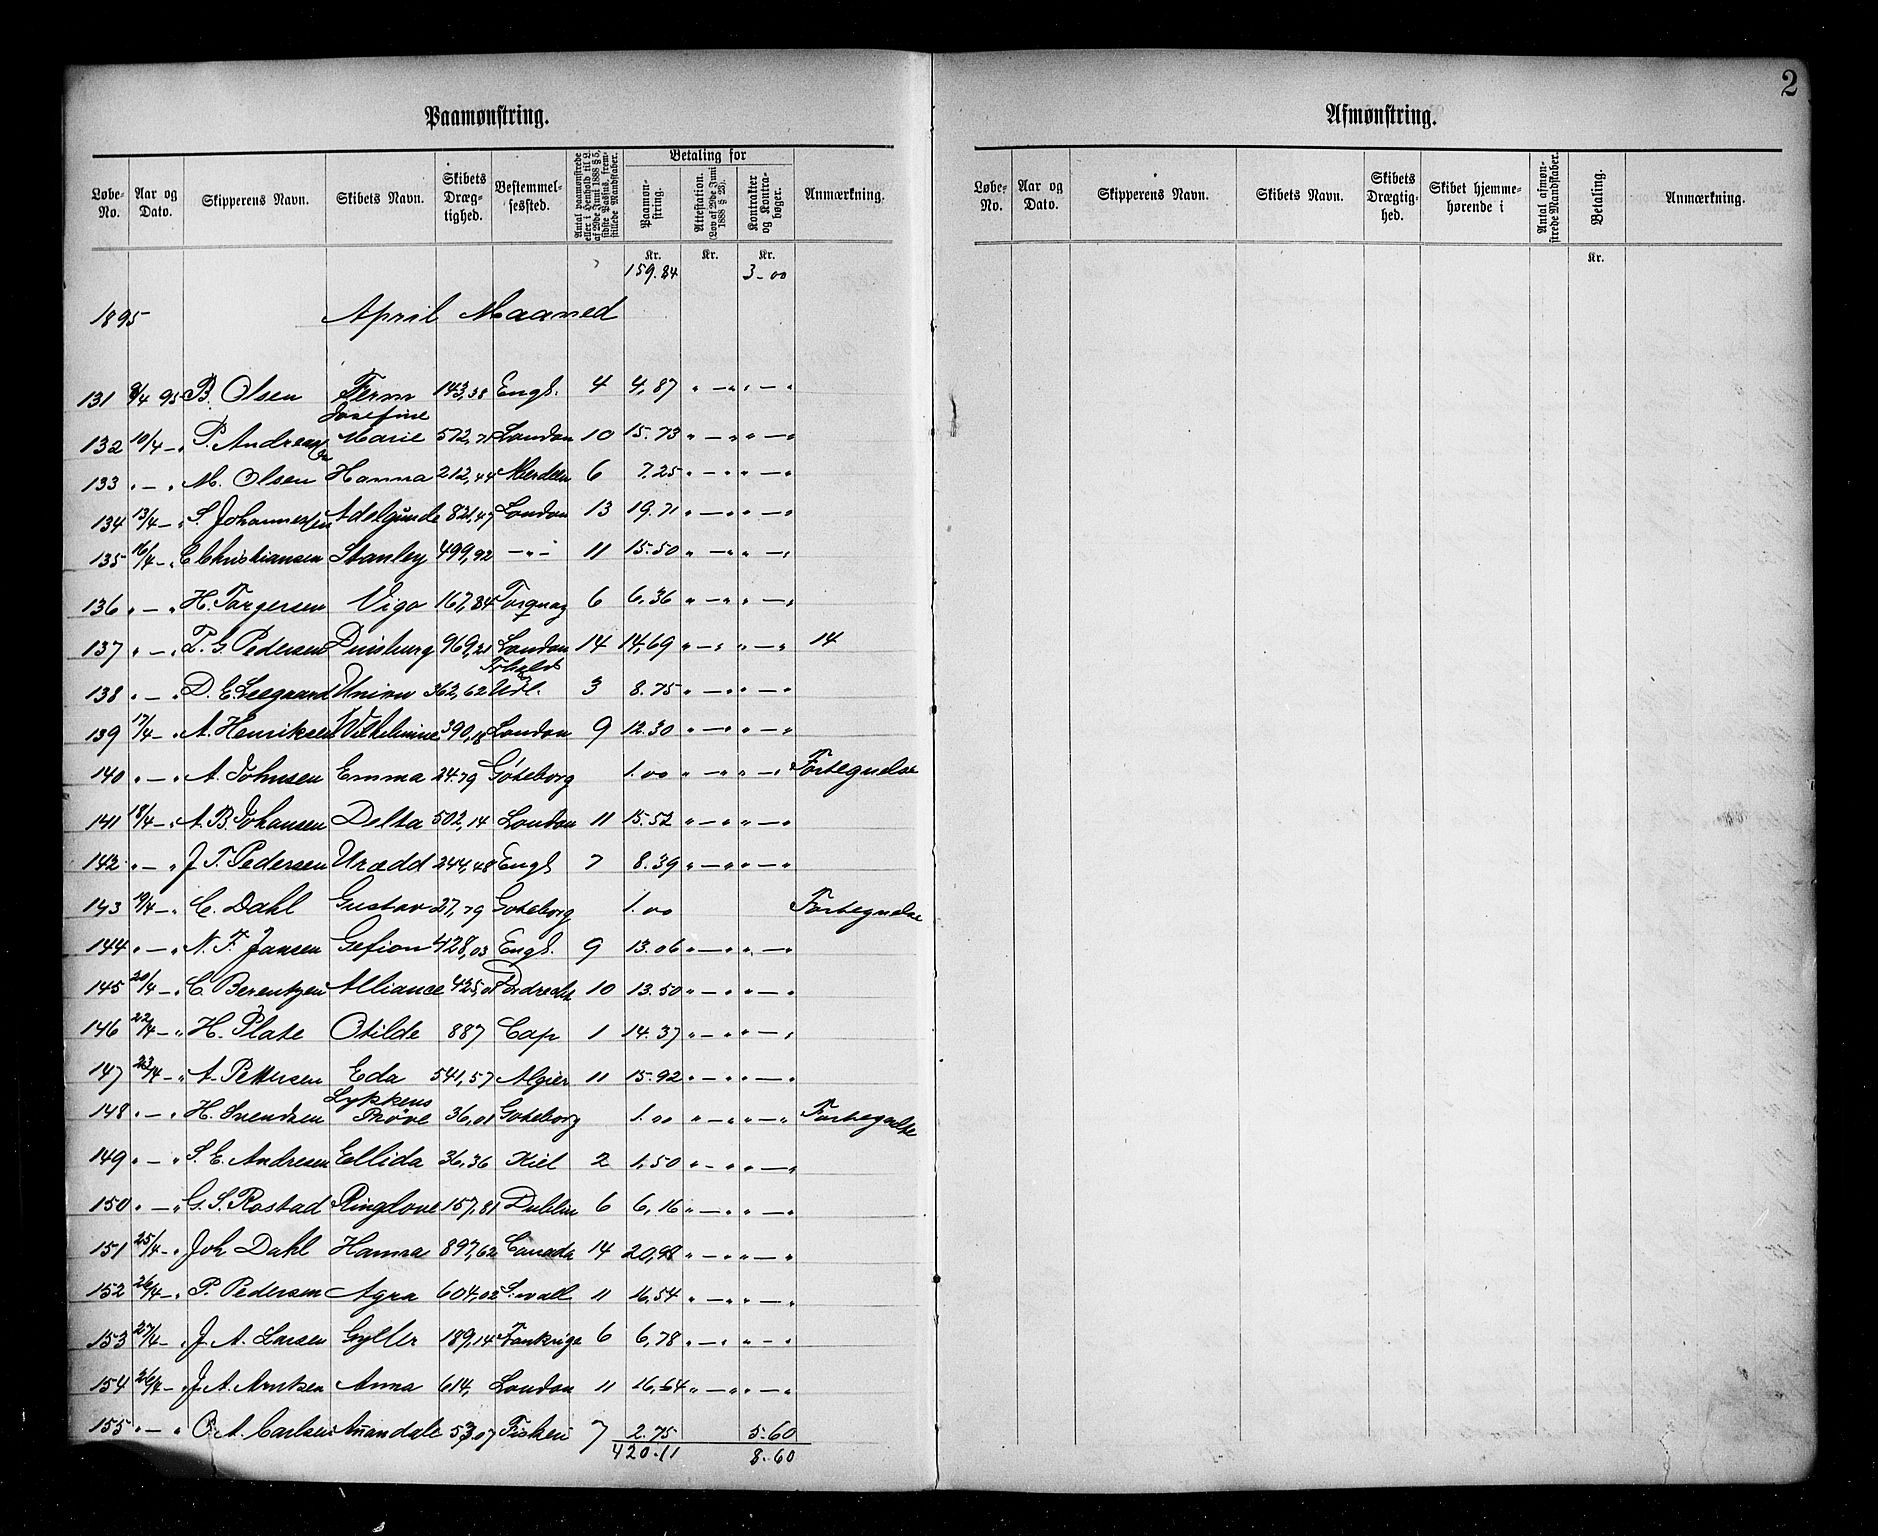 2
Paamønstring.
Løbe-No. Aar og Dato. Skippererens Navn. Skibets Navn. Skibets Dræg-tighed. Bestemmel-sessted. Antal paamønstrede eller i Henhold til L. af 29de Juni 1888 § 5, sidste Passus, frem-stillede Mandskaber. Betaling for Paamøn-string. Attestation. (Lov af 29de Juni 1888 § 23). Kontrakter og Kontra-bøger. Anmærkning.
Kr. Kr. Kr.
159.84 3-00
1895 April Maaned
131 9/4 95 B. Olsen Ferm 143,38 Engl. 4 4,87 " — " " — "
132 10/4 — " P. Andreassen Josefine Marie 572,71 London 10 15.73 " — " " — "
133 " — " M. Olsen Hanna 212,44 Aberdeen 6 7.25 " — " " — "
134 13/4 — " S. Johannessen Adelgunde 821,47 London 13 19.71 " — " " — "
135 16/4 — " E Christiansen Stanley 499,92 — " — 11 15.50 " — " " — "
136 " — " H. Torgersen Vigo 167,84 Torquay 6 6,36 " — " " — "
137 " — " T. G. Pedersen Duisburg 969,21 London 14 14,69 " — " " — " 14
138 " — " D. E. Leegaard Union 362,62 Udl. 3 8.75 " — " " — "
139 17/4 — " A. Henriksen Wilhelmine 390,18 London 9 12.30 " — " " — "
140 " — " A. Johnsen Emma 24.79 Göteborg 1.00 " — " " — " Fortegnelse
141 18/4 — " A. B. Johansen Delta 502,14 London 11 15.52 " — " " — "
142 " — " J. T. Pedersen Urædd 244,48 Engl 7 8.39 " — " " — "
143 19/4 — " C. Dahl Gustav 27,79 Goteborg 1.00 Fortegnelse
144 " — " N. F. Jansen Gefion 428,03 Engl. 9 13.06 " — " " — "
145 20/4 — " C. Berentzen Alliance 425,01 Dordrecht 10 13.50 " — " " — "
146 22/4 — " H. Plate Otilde 887 Cap 1 14.37 " — " " — "
147 23/4 — " A. Pettersen Eda 541,57 Algier 11 15.92 " — " " — "
148 " — " H. Svendsen Lykkens Prøve 36,01 Goteborg 1.00 " — " " — " Fortegnelse
149 " — " S. E. Andresen Ellida 36,36 Kiel 2 1,50 " — " " — "
150 " — " G. S. Rostad Ringdove 157,81 Dublin 6 6,16 " — " " — "
151 25/4 — " Joh Dahl Hanna 897,62 Canada 14 20,98 " — " " — "
152 26/4 — " P. Pedersen Agra 604,02 S.wall 11 16,54 " — " " — "
153 27/4 — " J. A. Larsen Gyller 189,14 Frankrige 6 6,78 " — " " — "
154 26/4 — " J. A. Arntsen Anna 614, London 11 16,64 " — " " — "
155 " — " O. A. Carlsen Anandale 53,07 Fiskeri 7 2.75 5.60
420.11 8.60
Afmønstring.
Løbe-No. Aar og Dato. Skipperens Navn. Skibets Navn. Skibets Drægtig-hed. Skibet hjemme-hørende i Antal afmøn-strede Mandskaber. Betaling. Anmærkning.
Kr.